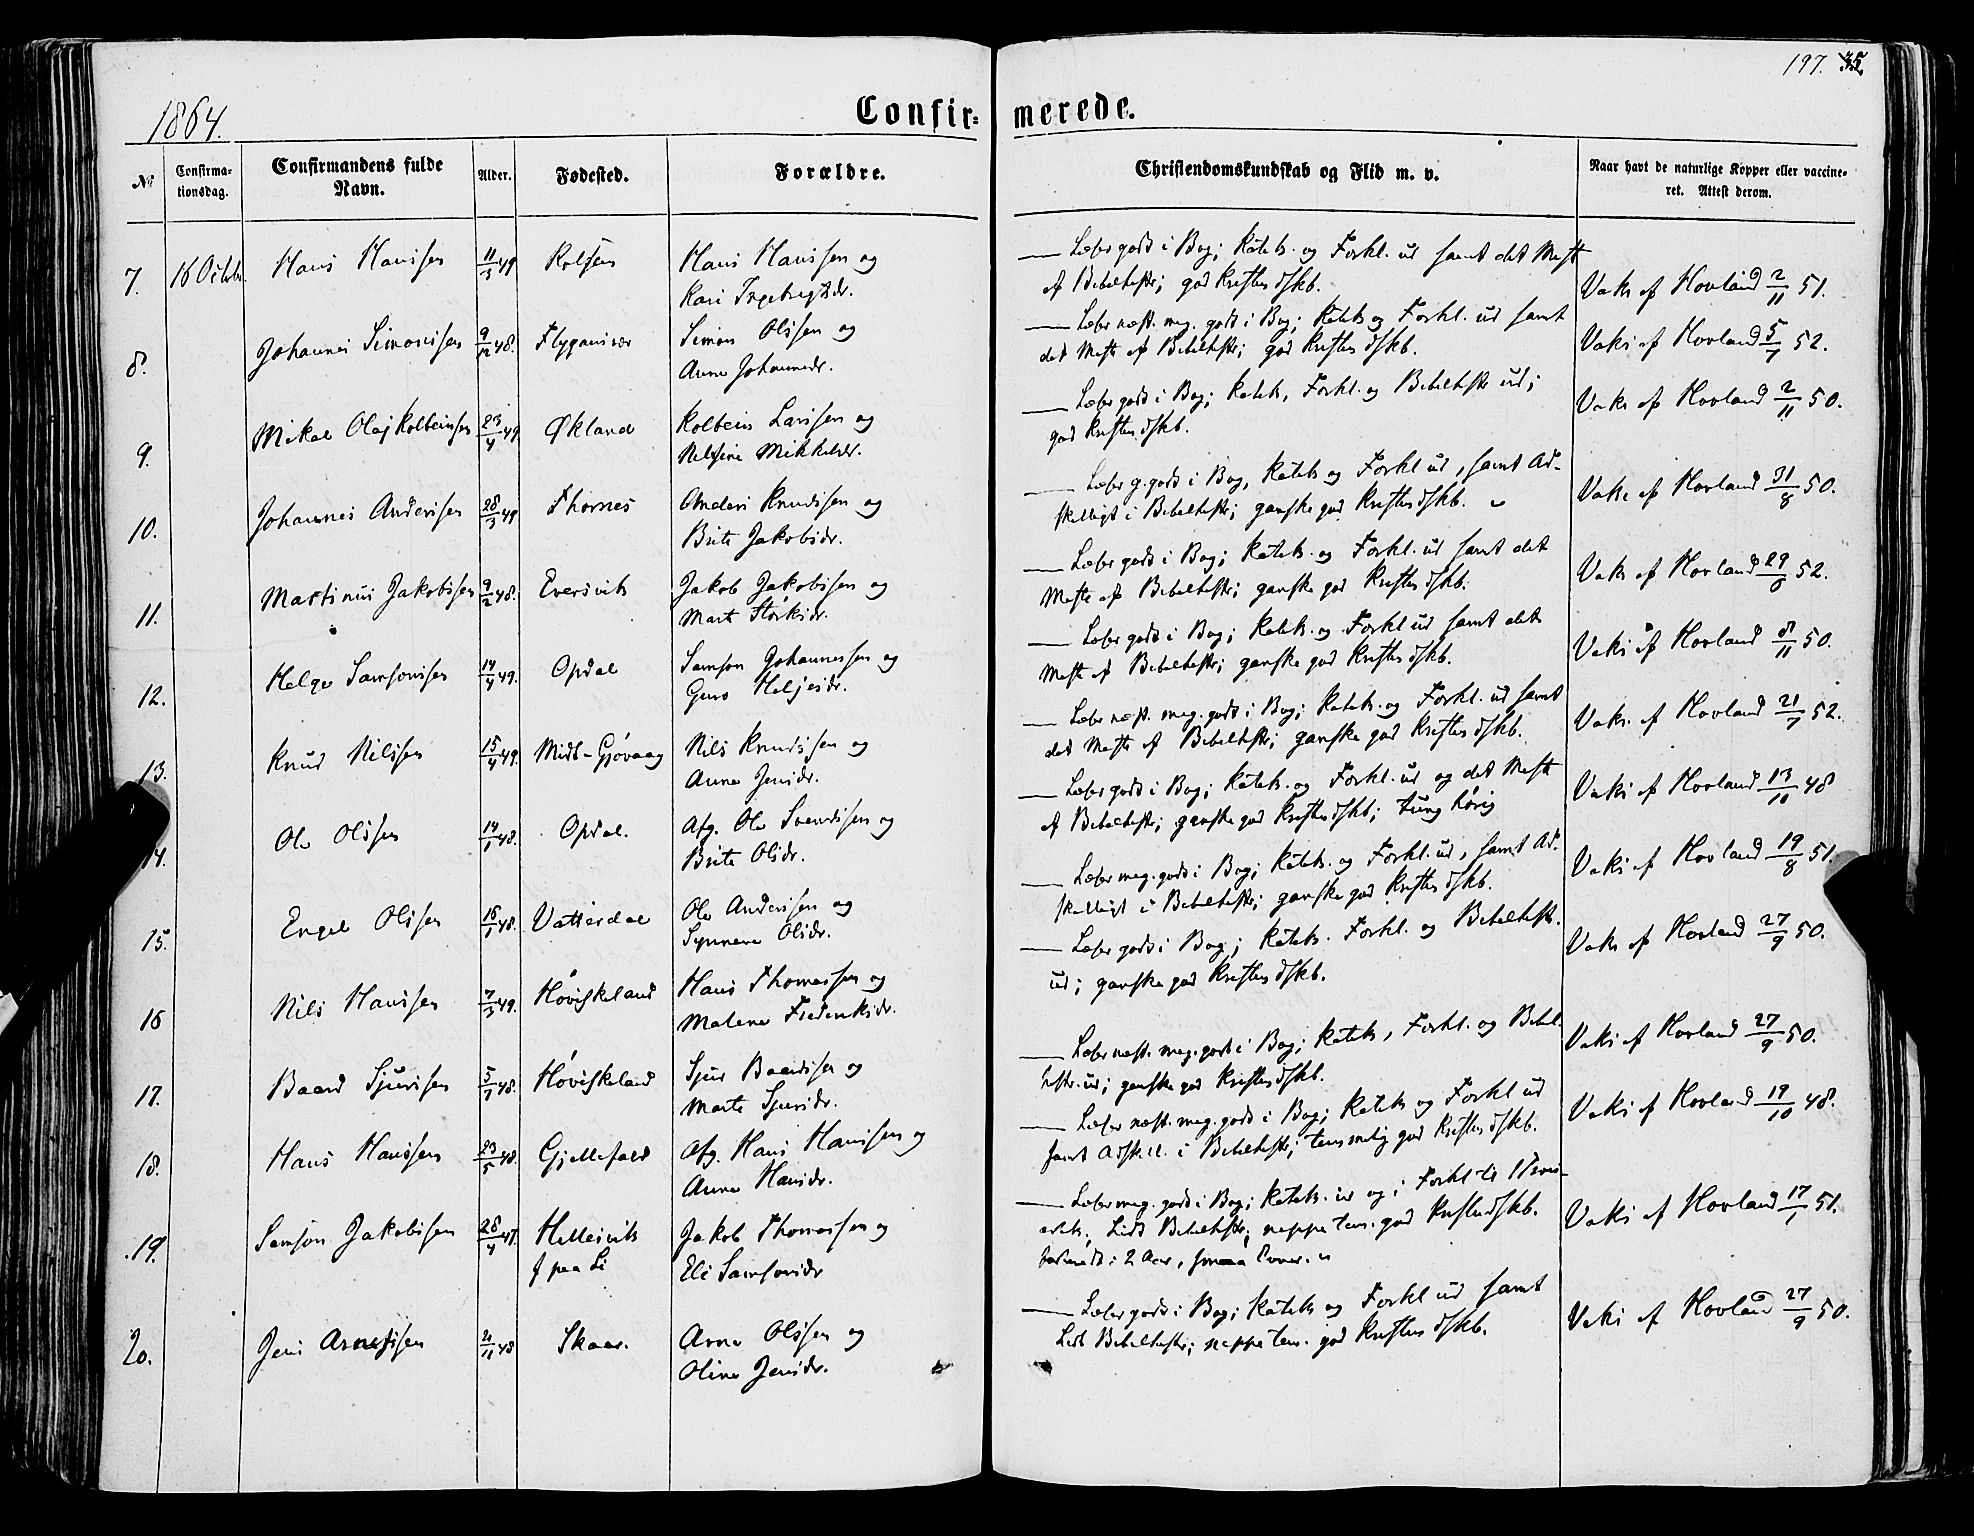 197.
1864.
Confir= merede.
No Confirma-tionsdag. Confirmandens fulde Navn. Alder. Fødested. Forældre. Christendomskundskab og Flid m. v. Naar havt de naturlige Kopper eller vaccine-ret. Attest derom.
7. 16 Octbr. Hans Hanssen 11/3 49 Rolfsen Hans Hanssen og
Kari Ingebrigtsdr.
Læser godt i Bog; Katek. og Forkl. ud samt det Meste
af Bibelhistr; god Kristendskb. Vaks af Hovland 2/11 51.
8. Johannes Simonssen 9/12 48. Flyganvær Simon Olssen og
Anna Johannesdr.
Læser næst. meg. godt i Bog; Katek og Forkl. ud samt
det Meste af Bibelhistr; god Kristendskb. Vaks af Hovland 5/7 52.
9. Mikal Olaj Kolbeinssen 23/4 49 Økland Kolbein Larssen og
Mikkelsdr.
Læser godt i Bog; Katek, Forkl. og Bibelhistr ud;
god Kristendskb. Vaks af Hovland 2/11 50.
10. Johannes Anderssen 28/3 49 Thornes Anders Knudssen og
Brite Jakobsdr.
Læser g. godt i Bog, Katek og Forkl ud, samt Ad-
skilligt i Bibelhistr; ganske god Kristendskb. Vaks af Hovland 31/8 50.
11. Martinus Jakobssen 9/2 48. Eversvik Jakob Jakobssen og
Marte Størksdr.
Læser godt i Bog; Katek. og Forkl. ud samt det
Meste af Bibelhistr; ganske god Kristendskb. Vaks af Hovland 29/6 52.
12. Helge Samsonssen 14/4 49. Opdal Samson Johannessen og
Guro Heljesdr.
Læser godt i Bog; Katek. og Forkl ud samt det
Meste af Bibelhistr; ganske god Kristendskb. Vaks af Hovland 8/11 50.
13. Knud Nilssen 15/4 49. Midt-Gjøvaag Nils Knudssen og
Anna Jensdr.
Læser næst. meg. godt i Bog; Katek. og Forkl. ud samt
det Meste af Bibelhistr; ganske god Kristendskb. Vaks. af Hovland 21/7 52.
14. Ole Olssen 14/1 48. Opdal. Afg. Ole Svendssen og
Brite Olsdr.
Læser godt i Bog; Katek. og Forkl. ud og det Meste
af Bibelhistr; ganske god Kristendskb; tung hørig Vaks af Hovland 13/10 48
15. Engel Olssen 16/1 48. Vatterdal Ole Anderssen og
Synneva Olsdr.
Læser meg. godt i Bog; Katek. og Forkl. ud, samt Ad-
skilligt i Bibelhistr; ganske god Kristendskb. Vaks af Hovland 19/8 51.
16 Nils Hanssen 7/3 49. Høviskeland Hans Thomassen og
Malena Frederiksdr.
Læser godt i Bog; Katek. Forkl. og Bibelhistr.
ud; ganske god Kristendskb. Vaks af Hovland 27/9 50.
17. Baard Sjurssen 5/1 48. Høviskeland Sjur Baardssen og
Marte Sjursdr.
Læser næst. meg. godt i Bog; Katek, Forkl. og Bibel-
histr. ud; ganske god Kristendskb. Vaks af Hovland 27/9 50.
18. Hans Hanssen 23/5 48. Gjellefald Afg. Hans Hanssen og
Anna Hansdr.
Læser næst. meg. godt i Bog; Katek og Forkl ud
samt Adskill. i Bibelhistr; temmelig god Kristendskb. Vaks af Hovland 19/10 48.
19. Samson Jakobssen 28/4 47. Hellesvik Jakob Thomassen og
f paa Li Eli Samsonsdr
Læser meg. godt i Bog; Katek. ud og i Forkl til
Lidt Bibelhistr; neppe tem. god Kristendskb. Vaks af Hovland 17/1 51.
i 2 Aar, smaa Evner.
20. Jens Arnessen 2/11 48 Skaar. Arne Olssen og
Oline Jensdr.
Læser godt i Bog; Katek og Forkl ud samt
Lidt Bibelhistr; neppe tem. god Kristendskb. Vaks af Hovland 27/9 50.